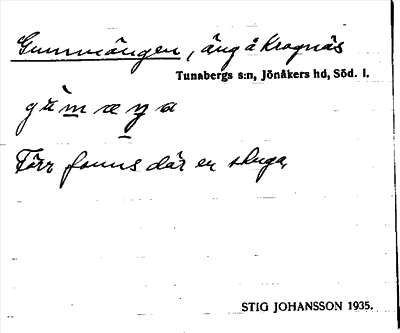 Gummängen, äng å Kragnäs
Tunabergs s:n, Jönåkers hd, Söd. l.
Förr fanns där en stuga
STIG JOHANSSON 1935.